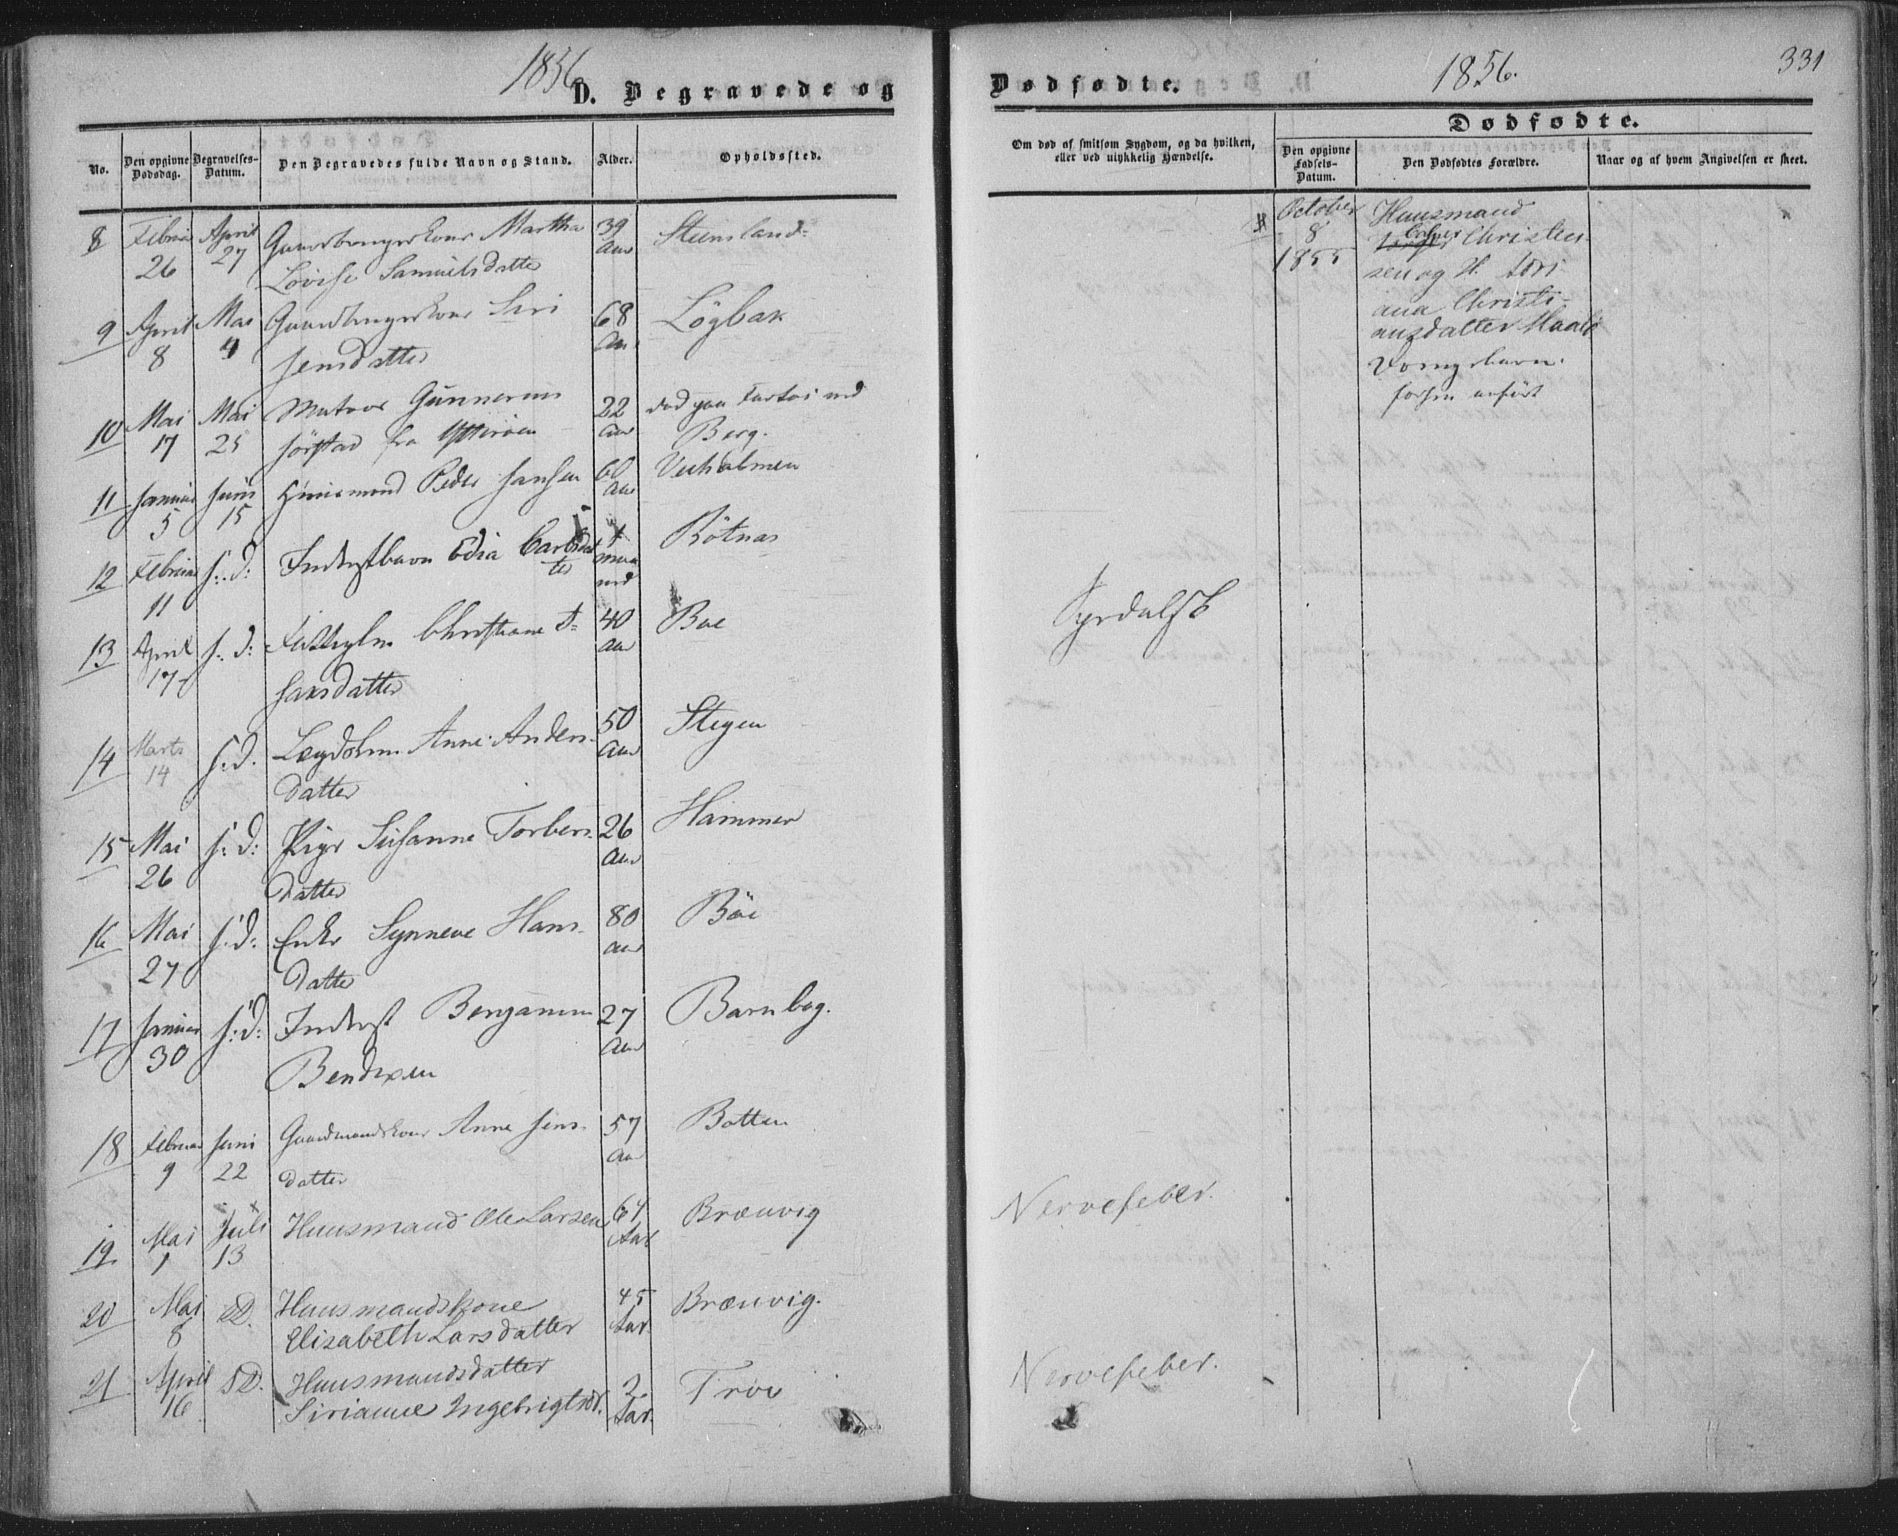 1856
D. Begravede og
No.
Den opgivne Dødsdag.
Begravelses-Datum.
Den Begravedes fulde Navn og Stand.
Alder.
Opholdssted.
8 Februar 26 April 27 Gaardbrugerkone Martha 39 Aar Steensland
Lovise Samuelsdatter
9 April 8 Mai 4 Gaardbrugerkone Siri 68 Aar Lögbak
Jensdatter
10 Mai 17 Mai 25 Matros Gunnerius 22 Aar død paa Fartøi ved
Sørstad fra Ytterøen Berg.
11 Januar 5 Juni 15 Huusmand Peder Hansen Aar Veeholmen
12 Februar 11 s: d: Inderstbarn Edia Carlsdatter Rötnas
13 April 17 s: d: Christiane 40 Aar Boe
datter
14 Marts 14 s. d. Lægdslem Anne Anders 50 Aar Stegen
datter
15 Mai 26 s: d: Pige Susanne Torbers 26 Aar Hammer
datter
16 Mai 27 s: d: Enke Synneve Hans 80 Aar Böe
datter
17 Januar 30 s: d: Inderst Benjamin 27 Aar Barnbog.
Bendixen
18 Februar 9 Juni 22 Gaardmandskone Anne Jens 57 Aar Botten
datter
19 Mai 1 Juli 13 Huusmand Ole Larsen 64 Aar Brænvig
20 Mai 8 s D. Huusmandskone 45 Aar Brænvig.
Elisabeth Larsdatter
21 April 16 S D. Huusmandsdatter
Sirianne Ingebrigtsdr. 2 Aar Troe
Dødfødte.
1856.
331
Om død af smitsom Sygdom, og da hvilken,
eller ved ulykkelig Hændelse.
Dødfødte.
Den opgivne Fødsels-Datum.
Den Dødfødtes Forældre.
Naar og af hvem Angivelsen er skeet.
October 8 1855
Huusmand
Christen
sen og H.
ana Christi-
ansdatter
anført
Nervefeber.
Nervefeber.